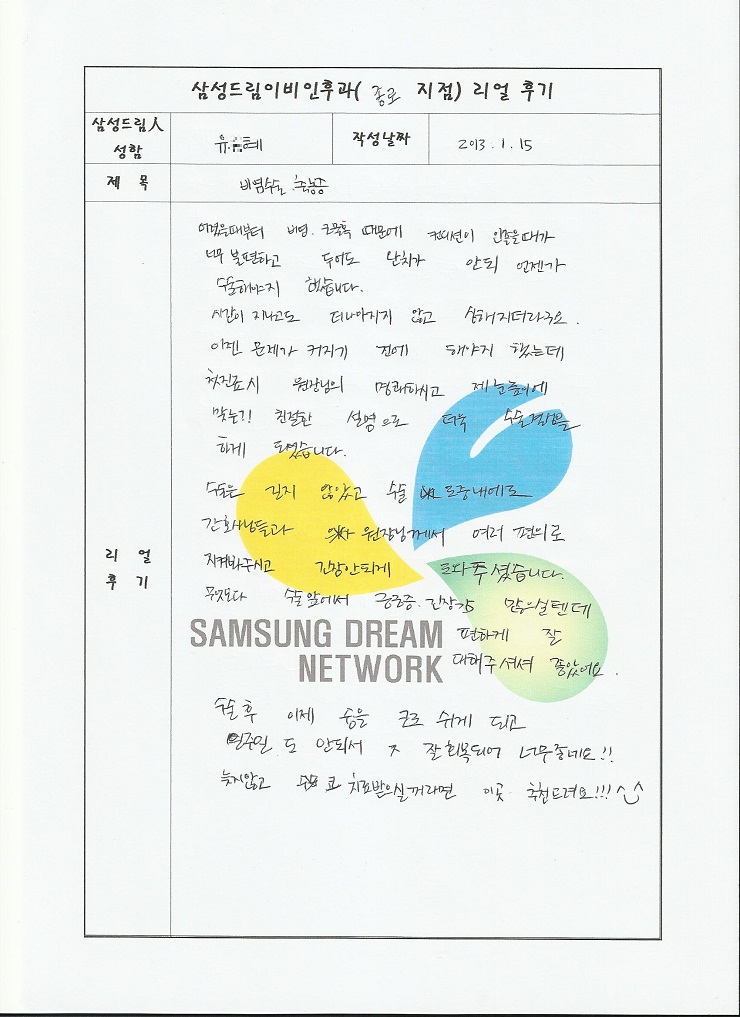 삼성드림이비인후과( 종로 지점) 리얼 후기
삼성드림人
성함
유 혜
작성날짜
2013. 1. 15
제 목
비염수술 축농증
어렸을때부터 비염. 코막힘 때문에 컨디션이 안좋을때가
너무 불편하고 두어도 난치가 안되 언젠가
수술해야지 했습니다.
시간이 지나고도 더 나아지지 않고 심해지더라구요.
이젠 문제가 커지기 전에 해야지 했는데
첫진료시 원장님의 명쾌하시고 제 눈높이에
맞는기! 친절한 설명으로 더욱 수술결심을
하게 되었습니다.
수술은 길지 않았고 수술 도중내에도
간호사님들과 원장님께서 여러 편의로
지켜봐주시고 긴장안되게 도와주셨습니다.
무엇보다 수술앞에서 궁금증. 긴장감 많으실텐데
편하게 잘
대해주셔서 좋았어요.
리 얼
후 기
SAMSUNG DREAM
NETWORK
수술 후 이제 숨을 코로 쉬게 되고
일주일 도 안되서 잘 회복되어 너무좋네요!!
늦지않고 코 치료받으실꺼라면 이곳 추천드려요!!! ^_^